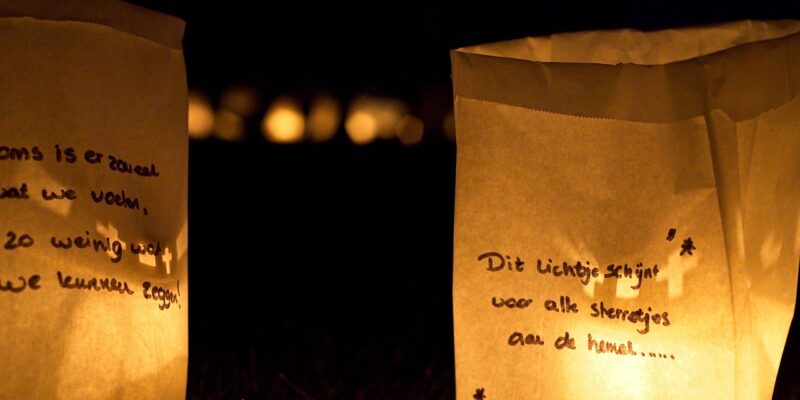 oms is er zoveel
wat we voelen,
zo weinig wat
we kunnen zeggen!
Dit lichtje schijnt
voor alle sterretjes
aan de hemel.....